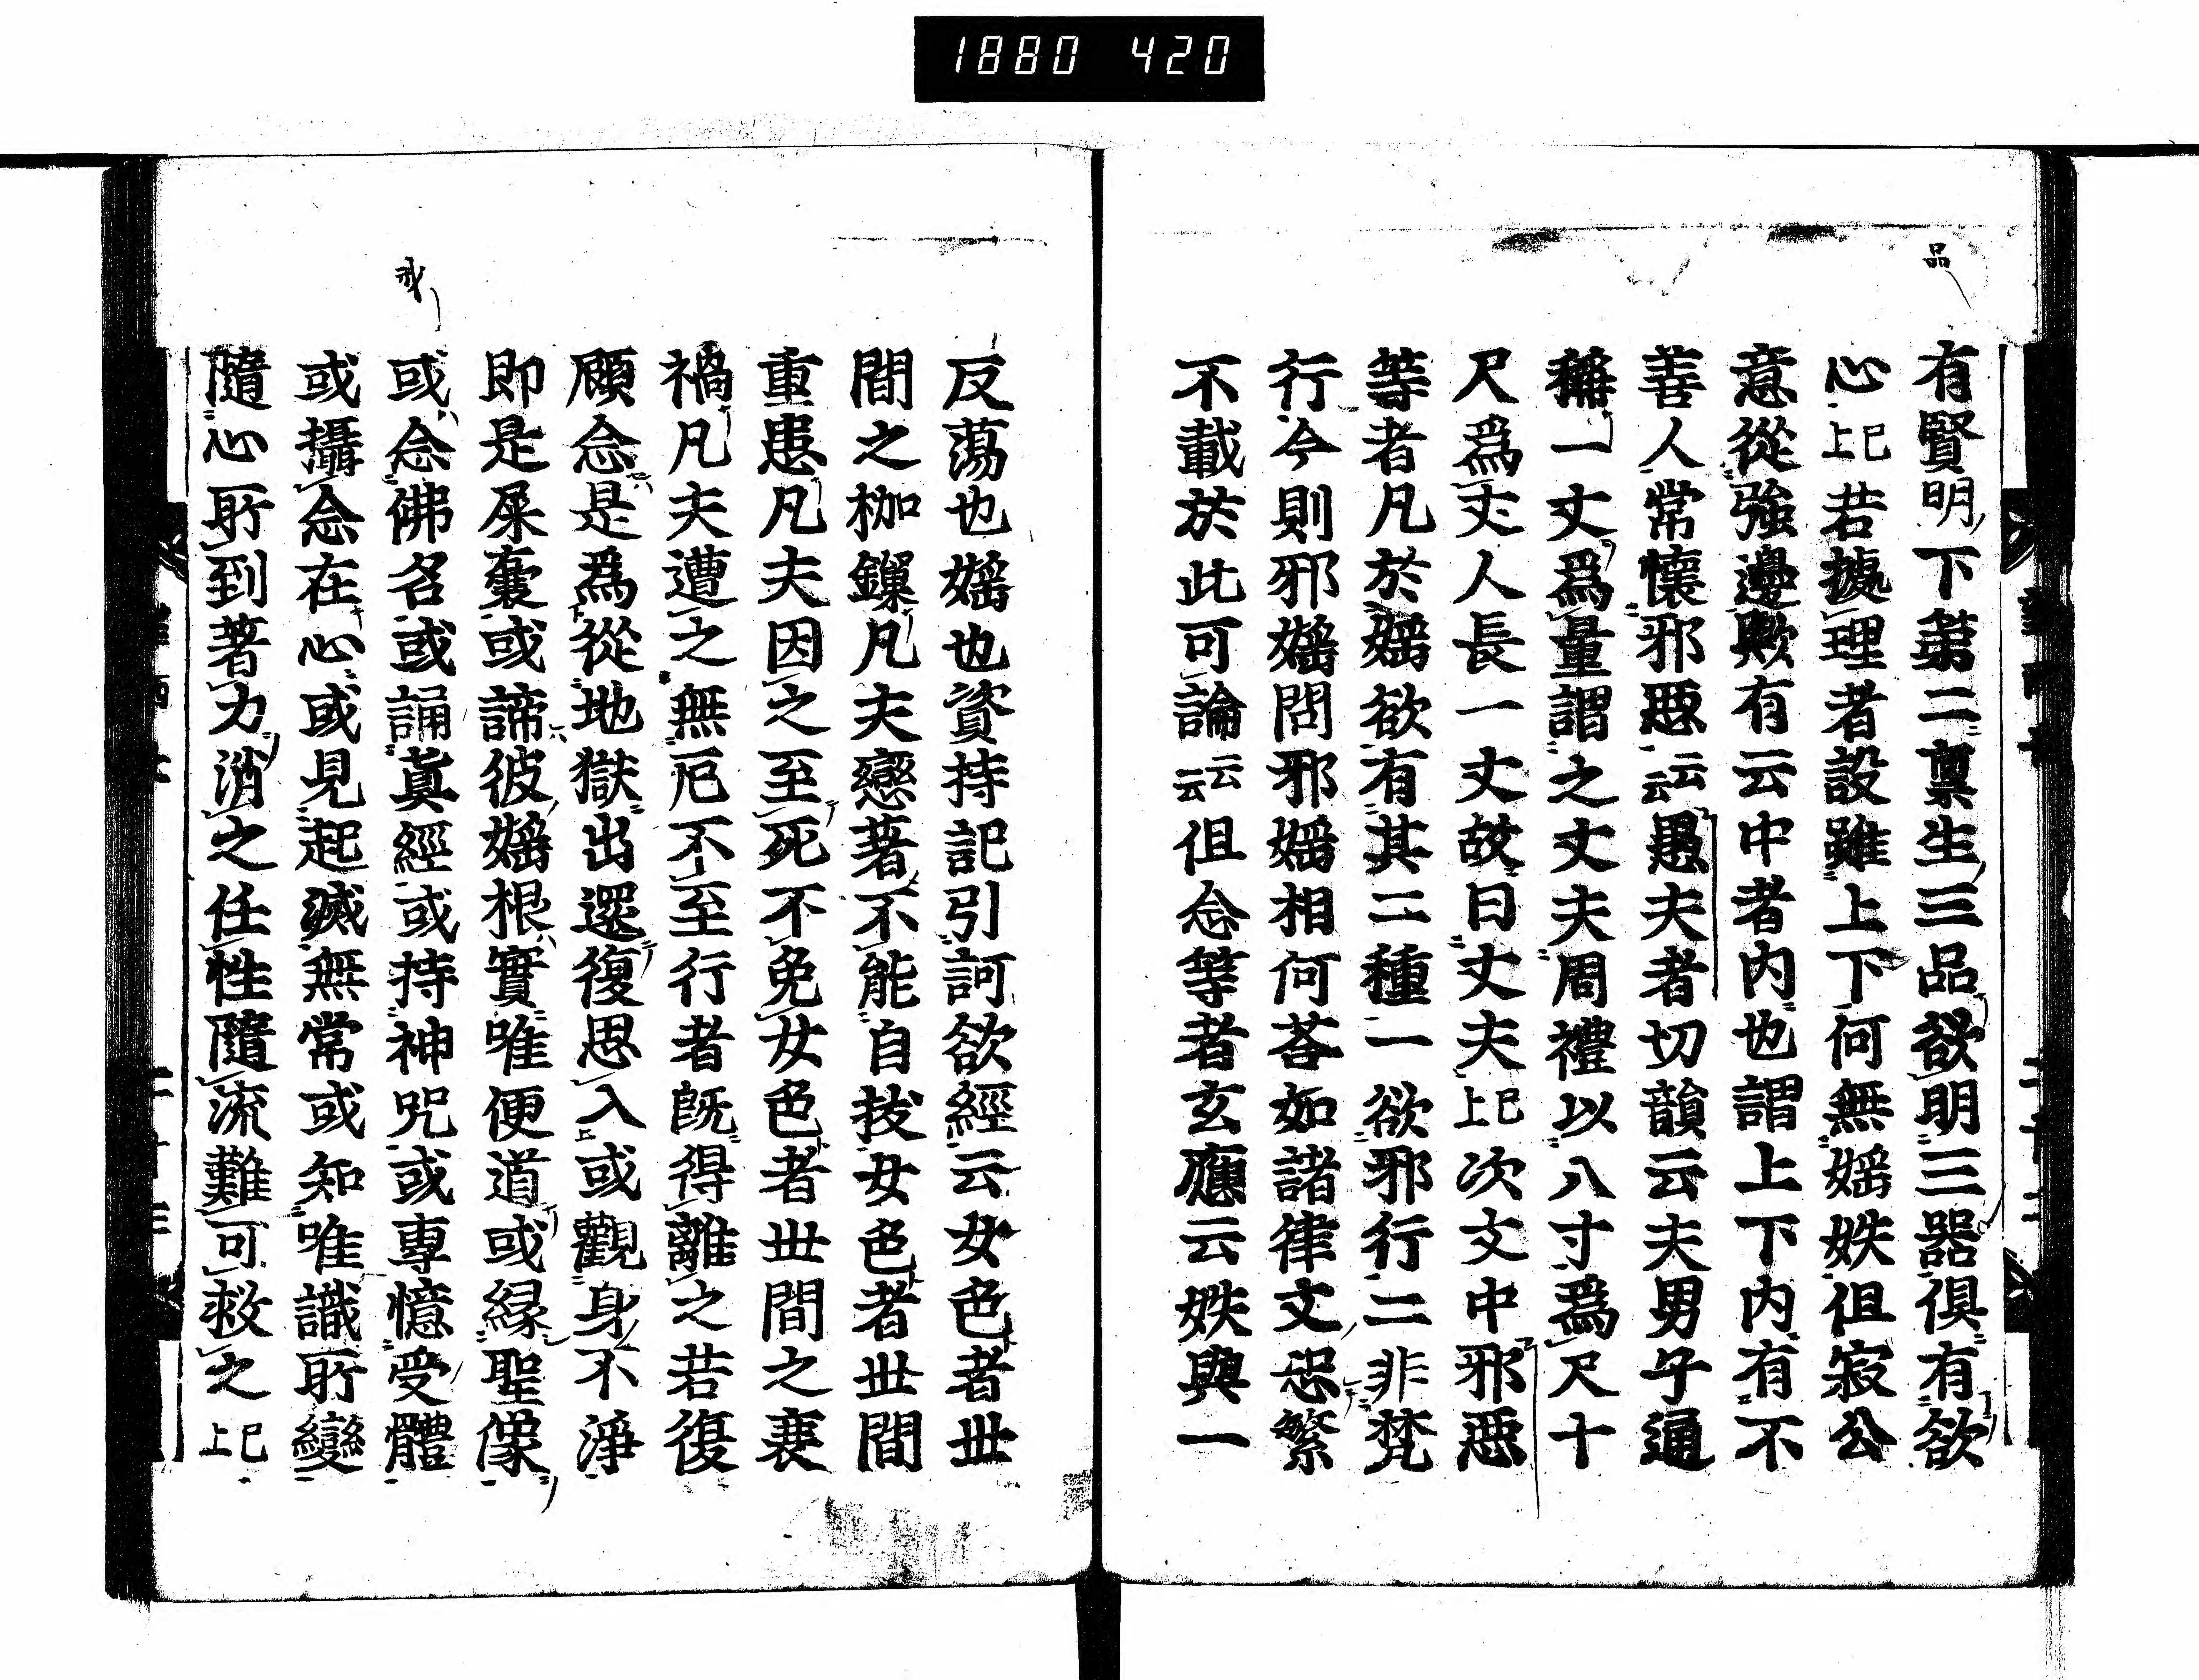 1880 420
品
有賢明下第二禀生三品欲明三器俱有欲
心已上若據理者設雖上下何無婬妷但寂公
意從強邊歟有云中者内也謂上下内有不
善人常懷邪惡云云愚夫者切韻云夫男子通
稱一丈爲量謂之丈夫周禮以八寸爲尺十
尺爲丈人長一丈故曰丈夫已上次文中邪惡
等者凡於婬欲有其二種一欲邪行二非梵
行今則邪婬問邪婬相何荅如諸律文恐繁
不載於此可論云云但念等者玄應云妷與一
反蕩也婬也資持記引訶欲經云女色者世
間之枷鏁凡夫戀著不能自拔女色者世間
重患凡夫因之至死不免女色者世間之衰
禍凡夫遭之無厄不至行者既得離之若復
顧念是爲從地獄出還復思入或觀身不淨
即是屎囊或諦彼婬根實唯便道或縁聖像
或念佛名或誦真經或持神咒或專憶受體
或攝念在心或見起滅無常或知唯識所變
隨心所到著力消之任性隨流難可救之已上